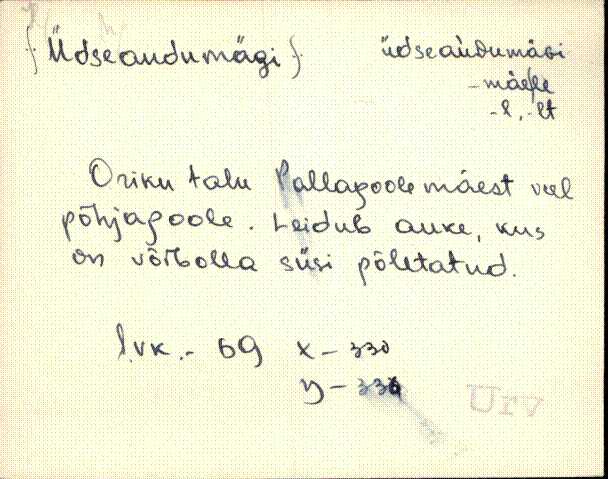 {Üdseaudumägi} üdseaudumäǵi
-mäele
-l, -lt
Oriku talu Pallagoole mäest veel
põhjapoole. Leidub auke, kus
on võibolla süsi põletatud.
lvk.- 69 x - 330
y - 336
Urv